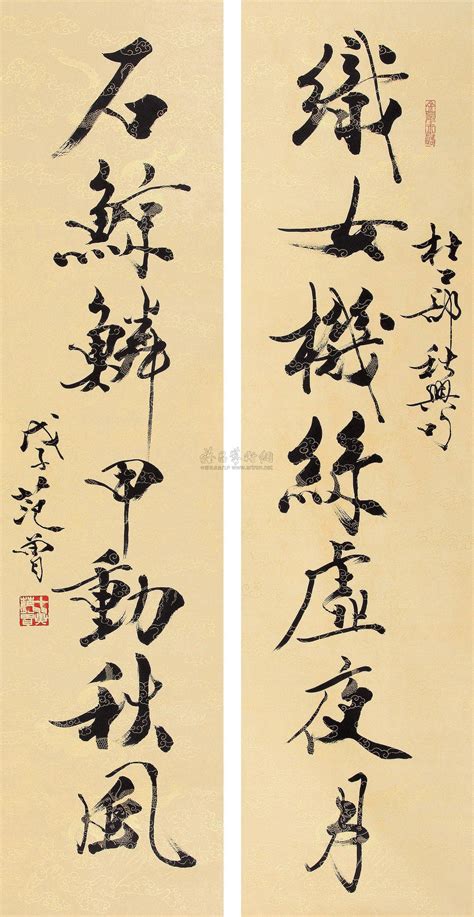 織女機絲虛夜月
杜工部秋興句
石鯨鱗甲動秋風
戊子范曾